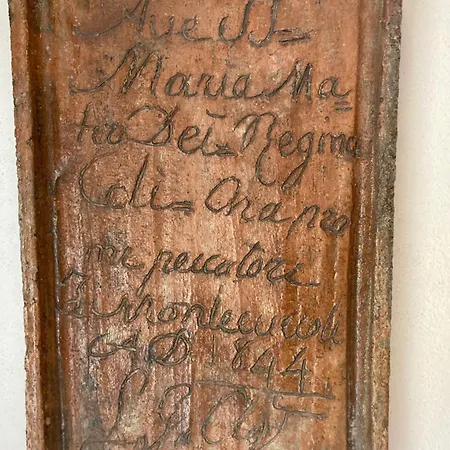 Ave SS=
Maria Ma=
ter Dei=Regina
Celi=Ora pro
me peccatore
Montecuccoli
A D 1844